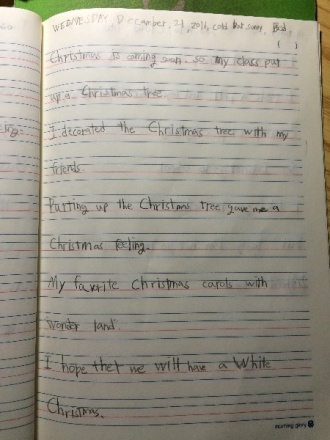 WEDNESDAY, December, 21, 2016, cold but sunny, Bad,
( )
Christmas is coming soon. so my class put
up a Christmas tree
I decorated the Christmas tree with my
friends.
Putting up the Christmas tree gave me a
Christmas feeling.
My favorite Christmas carols with
wonder land.
I hope that we will have a White
Christmas.